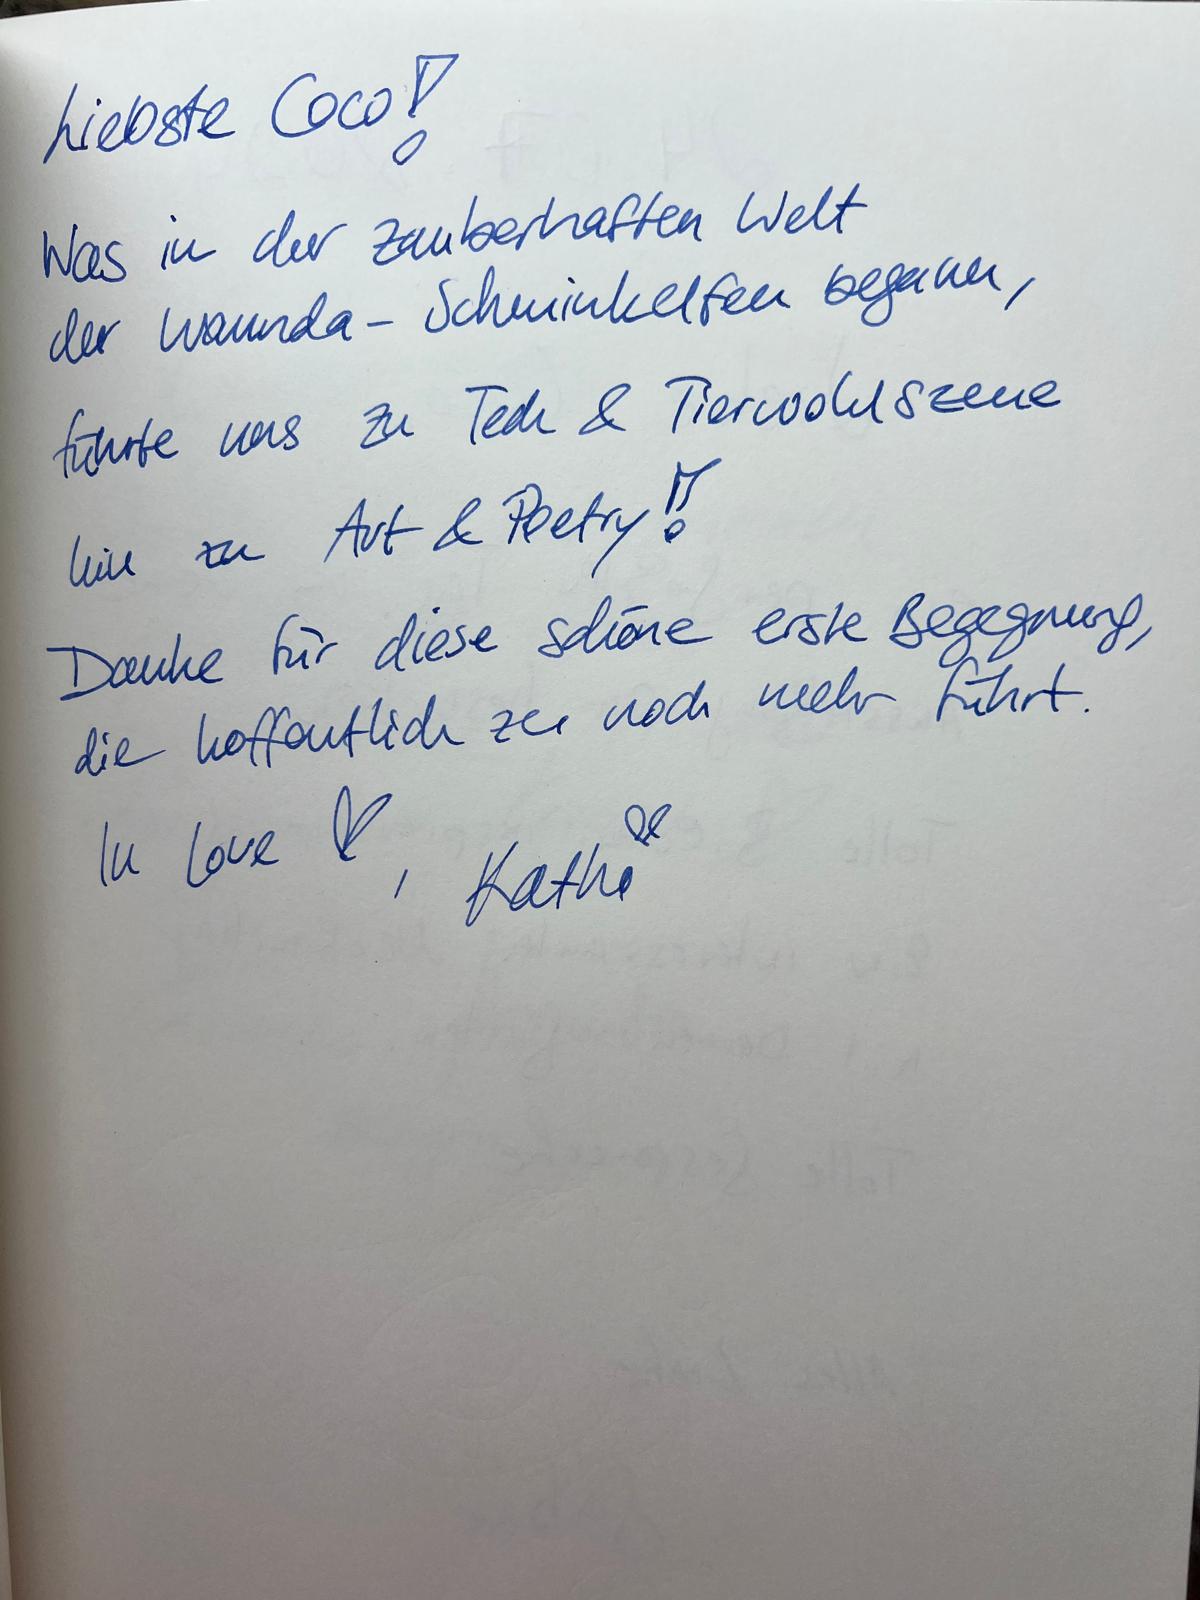 Liebste Coco!
Was in der zauberhaften Welt
der Waunda-Schminkelfen begann,
führte uns zu Tech & Tierwohlszene
hin zu Art & Poetry!!
Danke für diese schöne erste Begegnung,
die hoffentlich zu noch mehr führt.
In Love ♡, Kathi